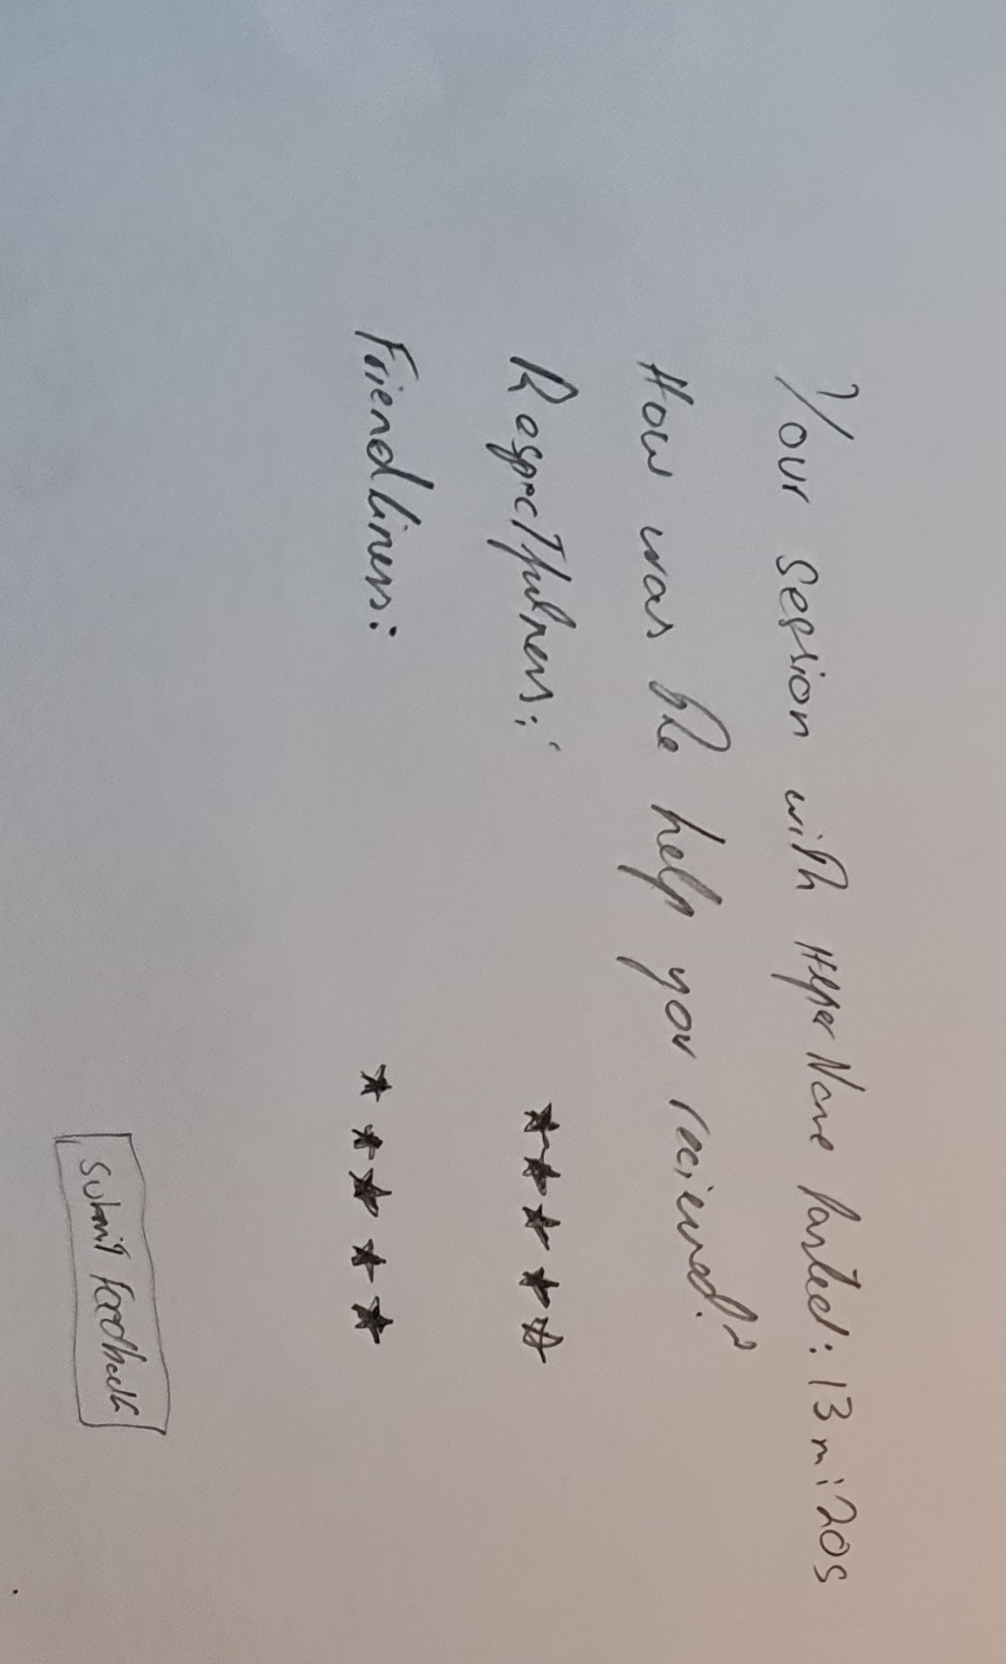 Your session with HelperName lasted: 13m:20s
How was the help you recieved?
Respectfulness: ★★★★☆
Friendliness: ★★★★★
Submit Feedback